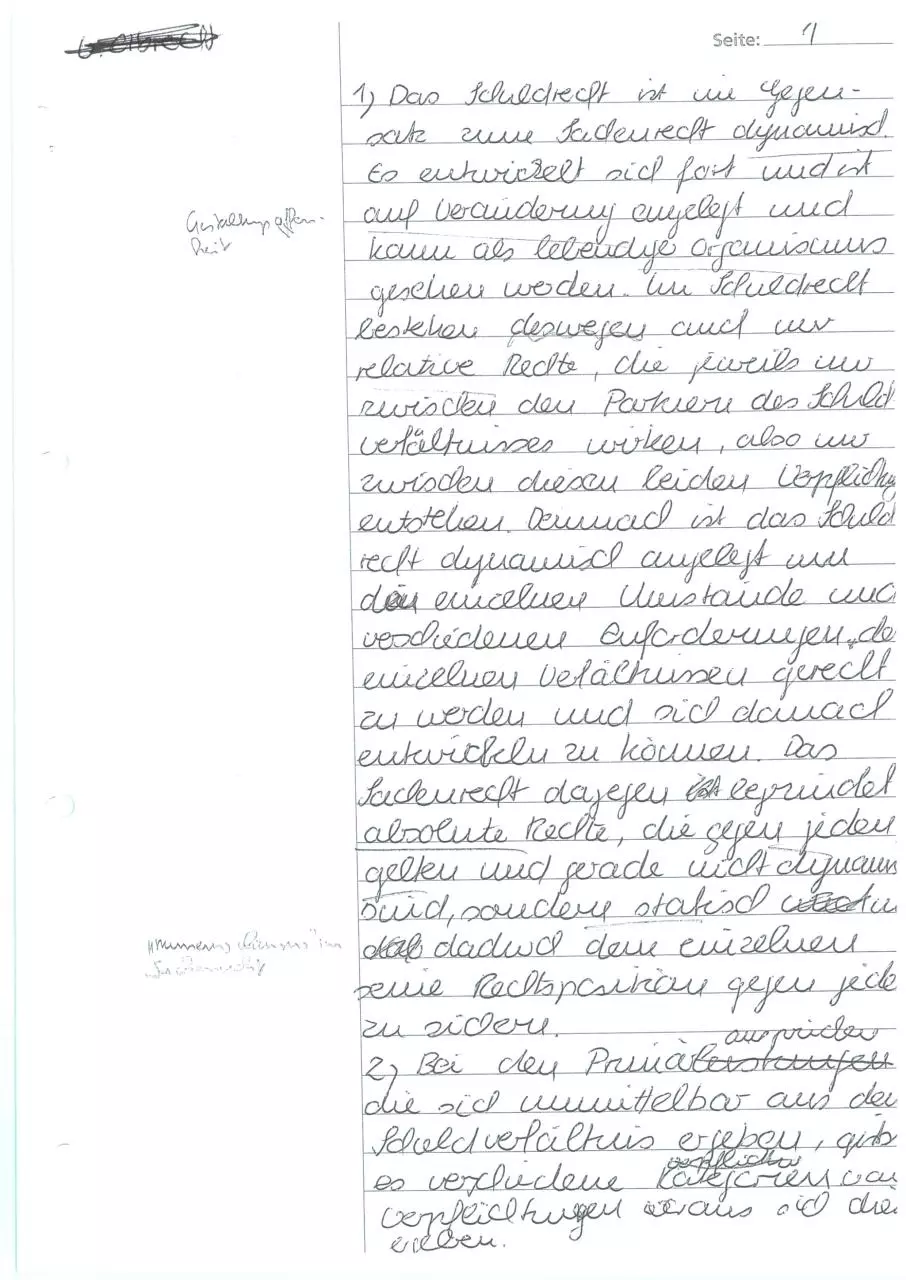 Seite: 1
1) Das Schuldrecht ist im Gegen-
satz zum Sachenrecht dynamisch.
Es entwickelt sich fort und ist
auf Veränderung angelegt und
kann als lebendige Organismus
gesehen werden. Im Schuldrecht
bestehen deswegen auch nur
relative Rechte, die jeweils nur
zwischen den Parteien des Schuld
verhältnisses wirken, also nur
zwischen diesen beiden Verpflichtg
entstehen. Demnach ist das Schuld
recht dynamisch angelegt um
den einzelnen Umstände und
verschiedenen Anforderungen de
einzelnen Verhältnissen gerecht
zu werden und sich danach
entwickeln zu können. Das
Sachenrecht dagegen begründet
absolute Rechte, die gegen jeden
gelten und gerade nicht dynam
sind, sondern statisch um
dadurch dem einzelnen
seine Rechtsposition gegen jede
zu sichern.
ansprüchen
2) Bei den Primär
die sich unmittelbar aus dem
Schuldverhältnis ergeben, gibt
es verschiedene Kategorien von
Verpflichtungen woraus sich die
ergeben.
Gestaltungsoffen-
heit
"numerus clausus" im
Sachenrecht